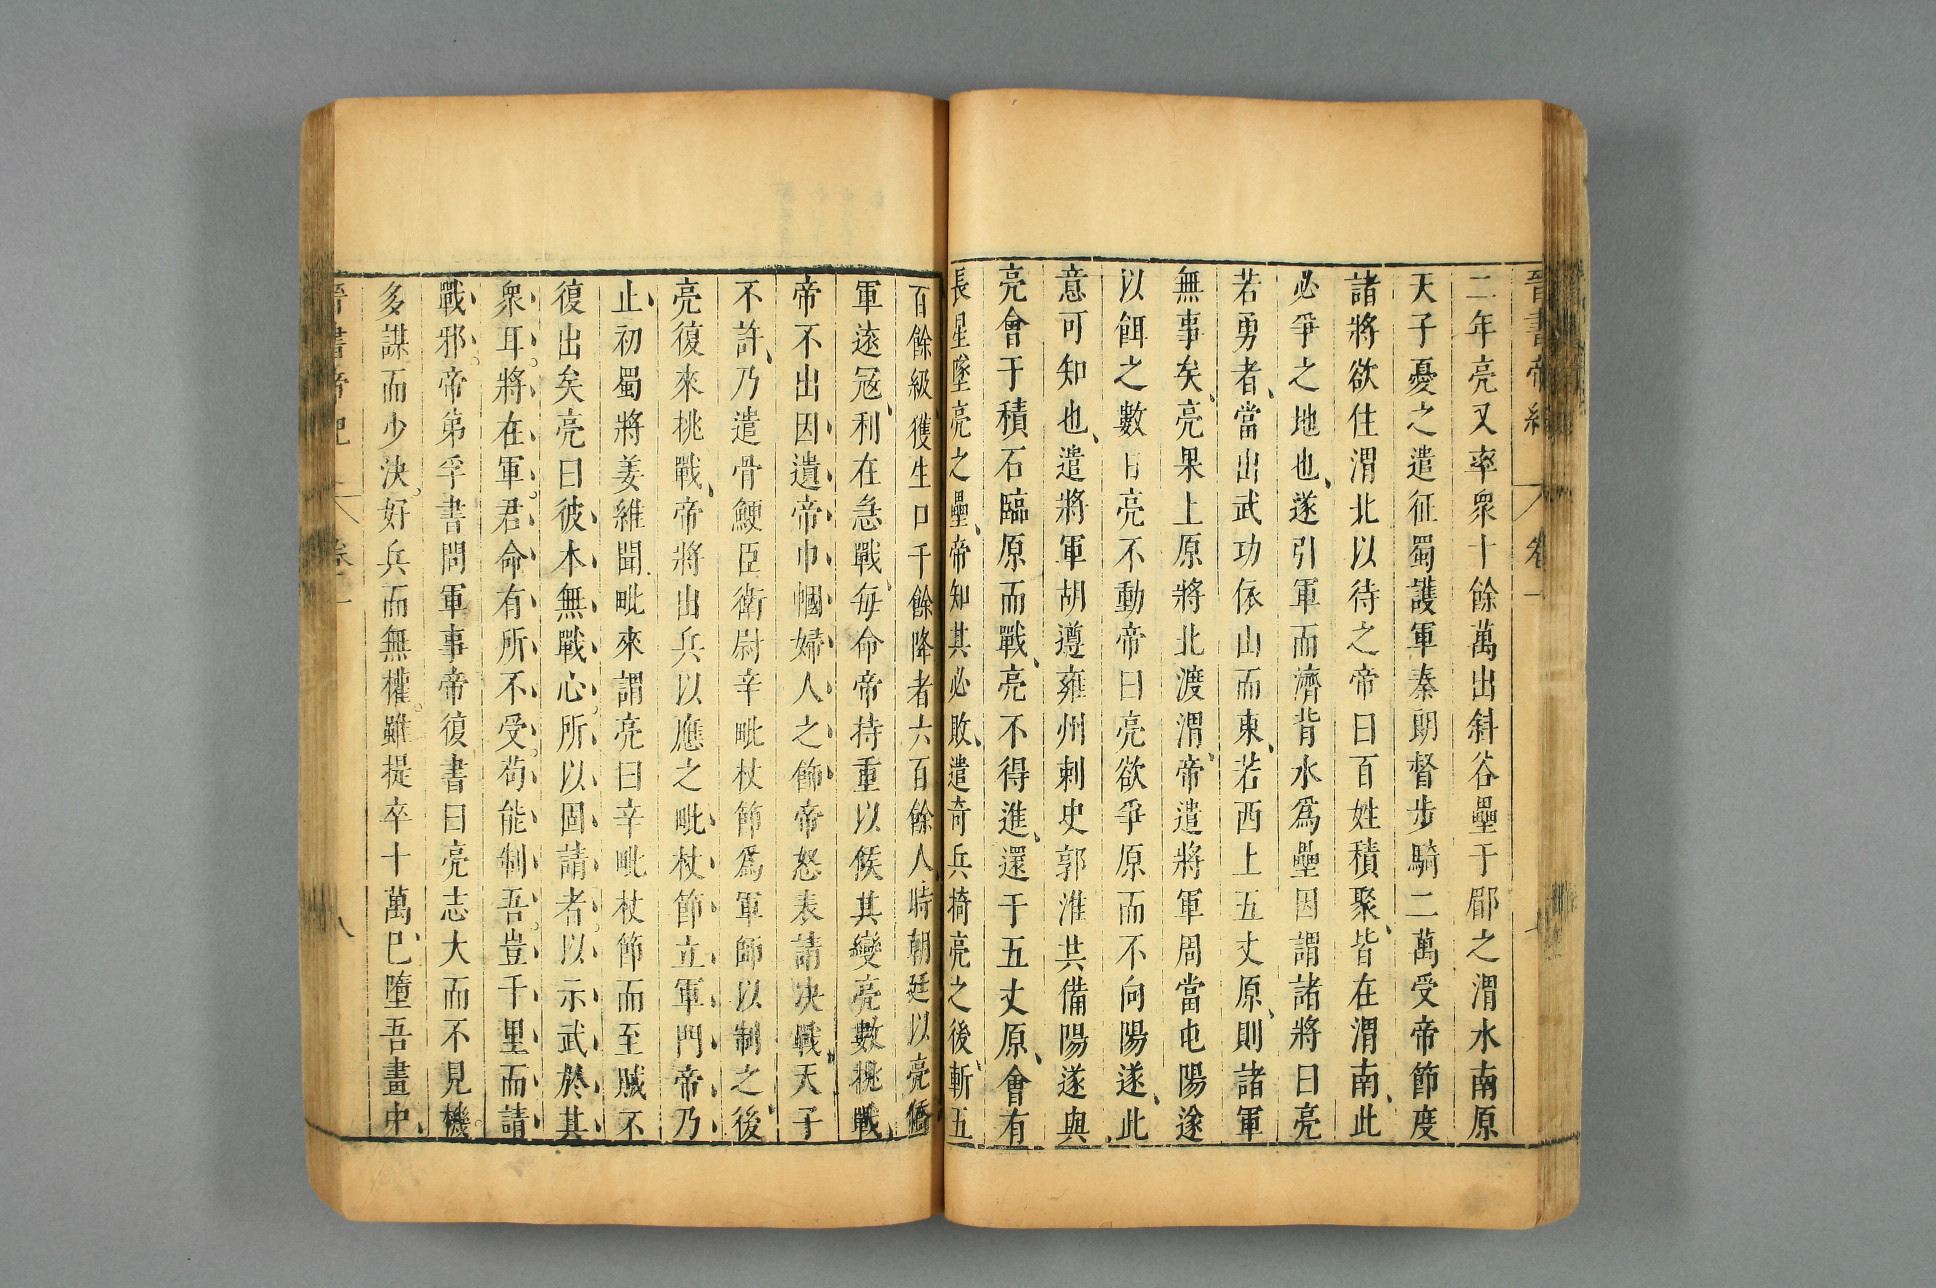 二年亮又率衆十餘萬出斜谷壘于郿之渭水南原
天子憂之遣征蜀護軍秦朗督步騎二萬受帝節度
諸將欲住渭北以待之帝曰百姓積聚、皆在渭南、此
必爭之地也、遂引軍而濟背水爲壘因謂諸將曰亮
若勇者、當出武功依山而東、若西上五丈原、則諸軍
無事矣、亮果上原將北渡渭、帝遣將軍周當屯陽遂
以餌之數日亮不動帝曰亮欲爭原而不向陽遂、此
意可知也、遣將軍胡遵雍州刺史郭淮共備陽遂與
亮會于積石臨原而戰、亮不得進、還于五丈原、會有
長星墜亮之壘、帝知其必敗、遣奇兵掎亮之後、斬五
百餘級獲生口千餘降者六百餘人時朝廷以亮僑
軍遠寇、利在急戰、每命帝持重以候其變亮數挑戰
帝不出因遺帝巾幗婦人之飾帝怒表請决戰、天子
不許、乃遣骨鯁臣衛尉辛毗杖節爲軍師以制之後
亮復來挑戰、帝將出兵以應之毗杖節立軍門帝乃
止、初蜀將姜維聞毗來謂亮曰辛毗杖節而至賊不
復出矣亮曰彼本無戰心。所以固請者。以示武於其
衆耳。將在軍。君命有所不受。苟能制吾。豈千里而請
戰邪。帝弟孚書問軍事帝復書曰亮志大而不見機。
多謀而少決。好兵而無權。雖提卒十萬已墮吾畫中、
晉書帝紀 卷一
八